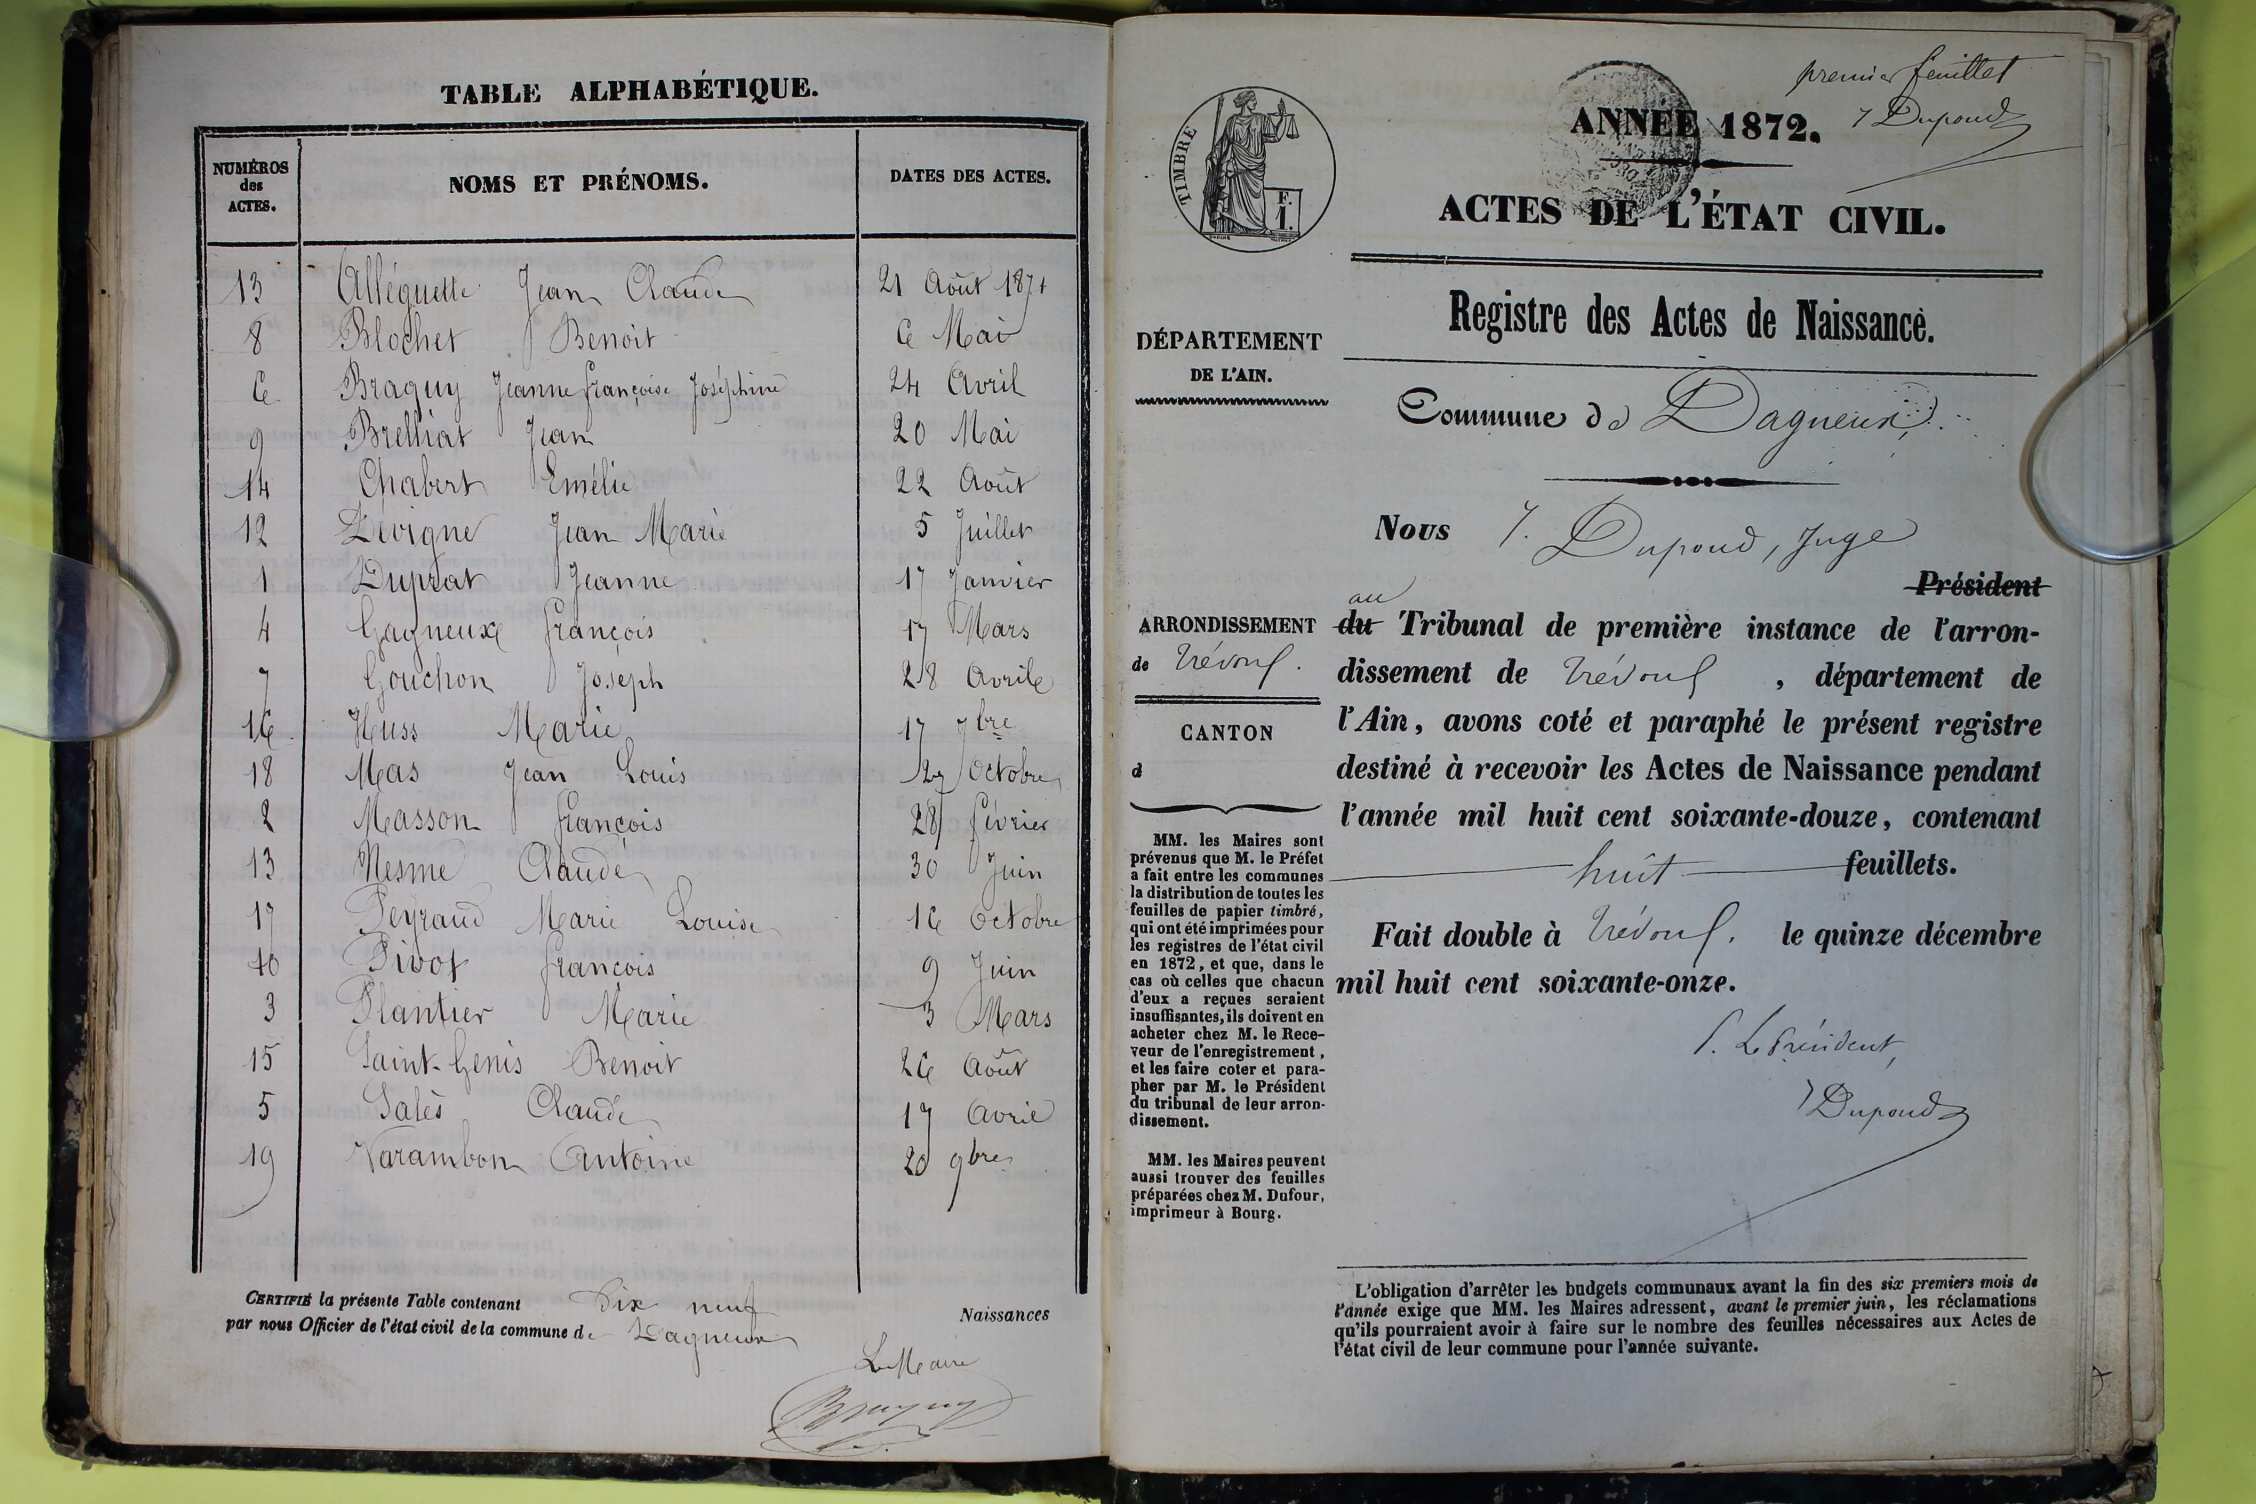 TABLE ALPHABÉTIQUE.
NUMÉROS des ACTES. NOMS ET PRÉNOMS. DATES DES ACTES.
13 Alléguette Jean Claude 21 Août 1871
8 Blochet Benoit 6 Mai
6 Braguy Jeanne françoise Joséphine 24 Avril
9 Brelliat Jean 20 Mai
14 Chabert Emélie 22 Août
12 Dévigne Jean Marie 5 Juillet
1 Duprat Jeanne 17 Janvier
4 Gagneuxe françois 17 Mars
7 Gouchon Joseph 28 Avril
16 Huss Marie 17 7bre
18 Mas Jean Louis 27 Octobre
2 Masson françois 28 février
13 Nesme Claude 30 Juin
17 Peyraud Marie Louise 16 Octobre
10 Pivot françois 9 Juin
3 Plantier Marie 3 Mars
15 Saint-Genis Benoit 26 Août
5 Salès Claude 17 Avril
19 Varambon Antoine 20 9bre
CERTIFIÉ la présente Table contenant Dix neuf Naissances
par nous Officier de l'état civil de la commune de Dagneux
Le Maire
premier feuillet
J Dupond
TIMBRE
F.
1.
ANNÉE 1872.
ACTES DE L'ÉTAT CIVIL.
Registre des Actes de Naissance.
DÉPARTEMENT
DE L'AIN.
Commune de Dagneux
Nous J. Dupond, Juge
Président
au
ARRONDISSEMENT
de Trévoux.
CANTON
d
du Tribunal de première instance de l'arron-
dissement de Trévoux, département de
l'Ain, avons coté et paraphé le présent registre
destiné à recevoir les Actes de Naissance pendant
l'année mil huit cent soixante-douze, contenant
huit feuillets.
Fait double à Trévoux, le quinze décembre
mil huit cent soixante-onze.
P. Le Président,
J Dupond
MM. les Maires sont
prévenus que M. le Préfet
a fait entre les communes
la distribution de toutes les
feuilles de papier timbré,
qui ont été imprimées pour
les registres de l'état civil
en 1872, et que, dans le
cas où celles que chacun
d'eux a reçues seraient
insuffisantes, ils doivent en
acheter chez M. le Rece-
veur de l'enregistrement,
et les faire coter et para-
pher par M. le Président
du tribunal de leur arron-
dissement.
MM. les Maires peuvent
aussi trouver des feuilles
préparées chez M. Dufour,
imprimeur à Bourg.
L'obligation d'arrêter les budgets communaux avant la fin des six premiers mois de
l'année exige que MM. les Maires adressent, avant le premier juin, les réclamations
qu'ils pourraient avoir à faire sur le nombre des feuilles nécessaires aux Actes de
l'état civil de leur commune pour l'année suivante.